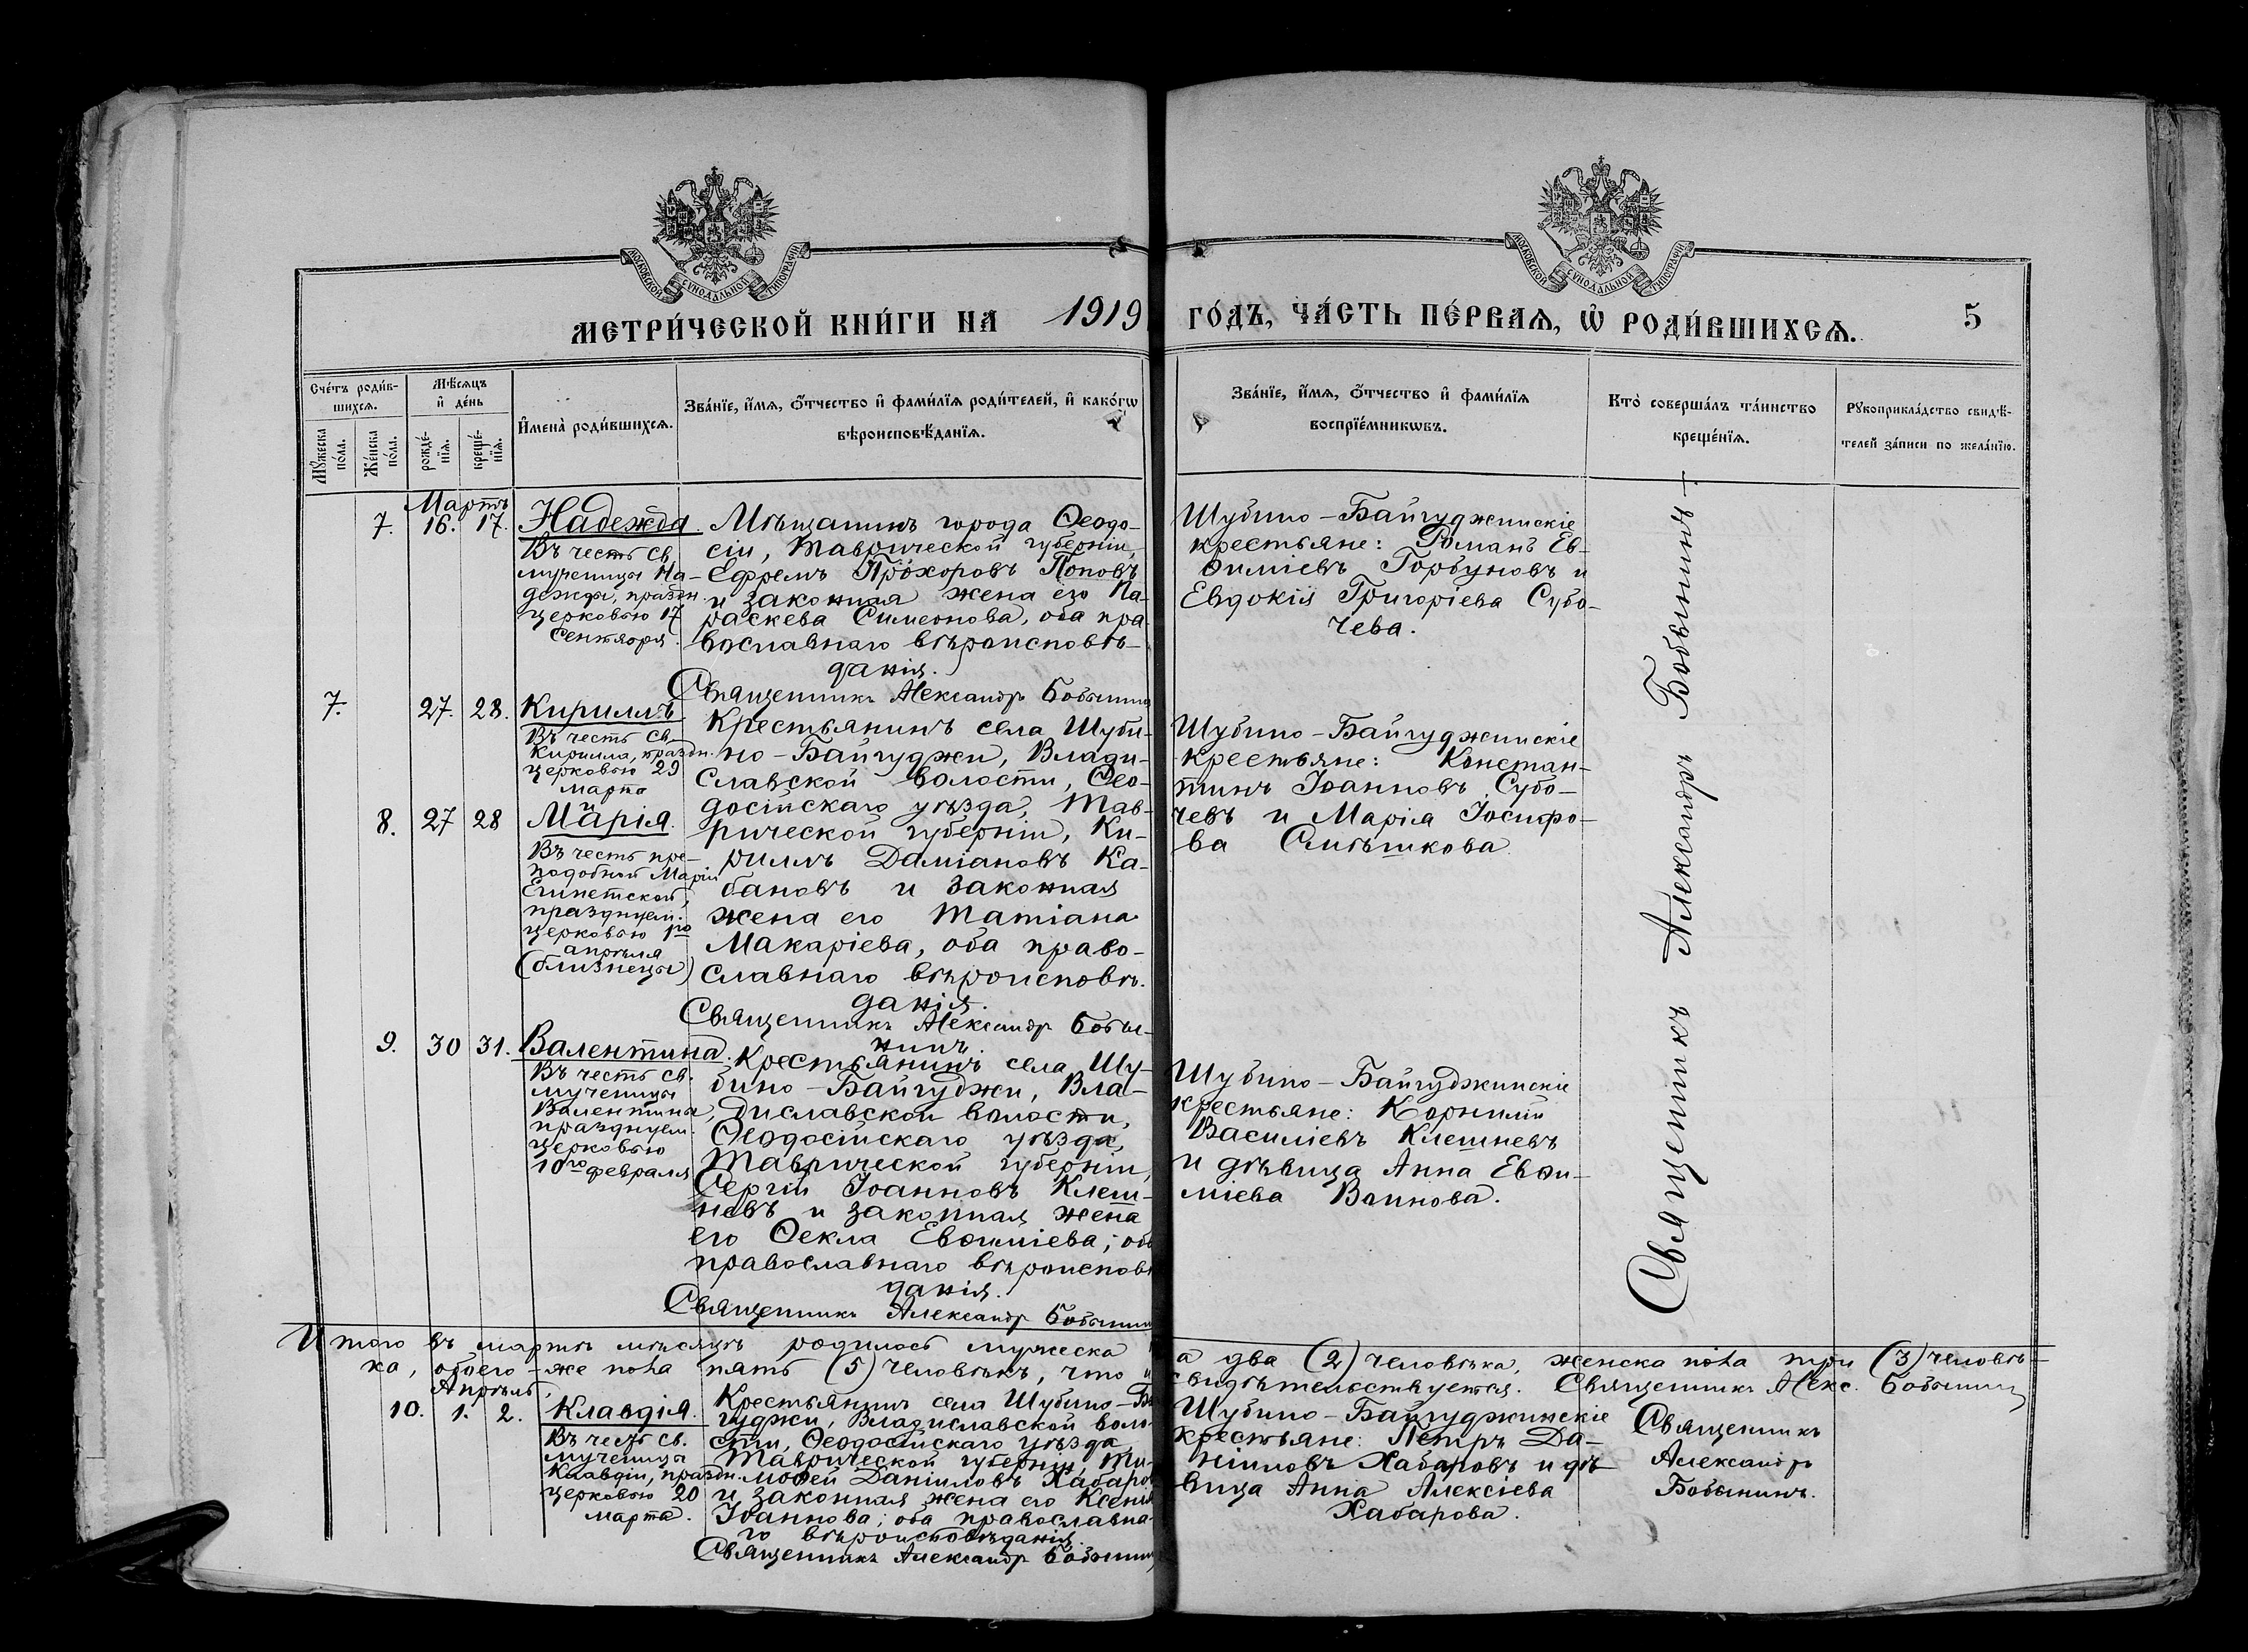 МОСКОВСКОЙ СѴНОДАЛЬНОЙ ТИПОГРАФІИ
МОСКОВСКОЙ СѴНОДАЛЬНОЙ ТИПОГРАФІИ
МЕТРИ́ЧЕСКОЙ КНИ́ГИ НА 1919 ГО́ДЪ, ЧА́СТЬ ПЕ́РВАѦ, Ѡ҆ РОДИ́ВШИХСѦ. 5
Сче́тъ роди́в-
шихсѧ.
Мꙋ́жеска по́ла.
Же́нска по́ла.
Мѣ́сѧцъ
и҆ де́нь
рожде́-
нїѧ.
креще́-
нїѧ.
И҆мена̀ роди́вшихсѧ.
Зва́нїе, и҆́мѧ, ѻ҆́тчество и҆ фами́лїѧ роди́телей, и҆ како́гѡ
вѣроисповѣ́данїѧ.
Зва́нїе, и҆́мѧ, ѻ҆́тчество и҆ фами́лїѧ
воспрїе́мникѡвъ.
Кто̀ соверша́лъ та́инство
креще́нїѧ.
Рꙋкоприкла́дство свидѣ́-
телей за́писи по жела́нїю.
Мартъ
7. 16. 17. Надежда.
Въ честь св.
мученицы На-
дежды, праздн.
церковью 17
Сентября.
Мѣщанинъ города Ѳеодо-
сіи, Таврической губерніи,
Ефремъ Прохоровъ Поповъ
и законная жена его Па-
раскева Симеонова, оба пра-
вославнаго вѣроисповѣ-
данія.
Священникъ Александръ Бобынинъ
Шубино-Байгуджинскіе
крестьяне: Романъ Ев-
ѳиміевъ Горбуновъ и
Евдокія Григоріева Субо-
чева.
7. 27. 28. Кириллъ
Въ честь св.
Кирилла, праздн.
церковью 29
марта
и
8. 27 28 Марія.
Въ честь пре-
подобной Маріи
Египетской,
празднуем.
церковью 1го
апрѣля
(близнецы)
Крестьянинъ села Шуби-
но-Байгуджи, Влади-
славской волости, Ѳео-
досійскаго уѣзда, Тав-
рической губерніи, Ки-
риллъ Даміановъ Ка-
бановъ и законная
жена его Татіана
Макаріева, оба право-
славнаго вѣроисповѣ-
данія.
Священникъ Александръ Бобы-
нинъ.
Шубино-Байгуджинскіе
крестьяне: Констан-
тинъ Іоанновъ Субо-
чевъ и Марія Іосифо-
ва Смѣшкова
9. 30 31. Валентина.
Въ честь св.
мученицы
Валентины,
празднуем.
церковью
10го февраля
Крестьянинъ села Шу-
бино-Байгуджи, Вла-
диславской волости,
Ѳеодосійскаго уѣзда,
Таврической губерніи,
Сергій Іоанновъ Клеш-
невъ и законная жена
его Ѳекла Евѳиміева; оба
православнаго вѣроисповѣ
данія.
Священникъ Александръ Бобынинъ
Шубино-Байгуджинскіе
крестьяне: Корнилій
Василіевъ Клешневъ
и дѣвица Анна Евѳи-
міева Воинова.
Священникъ Александръ Бобынинъ
Итого въ мартѣ мѣсяцѣ родилось мужеска
а два (2) человѣка, женска пола три (3) человѣ-
ка, обоего-же пола пять (5) человѣкъ, что
свидѣтельствуется. Священникъ Алекс. Бобынинъ
Апрѣль.
10. 1. 2. Клавдія.
Въ честь св.
мученицы
Клавдіи, праздн.
церковью 20
марта.
Крестьянинъ села Шубино-Ба
гуджи, Владиславской воло-
сти, Ѳеодосійскаго уѣзда,
Таврической губерніи, Ти-
моѳей Даніиловъ Хабаровъ
и законная жена его Ксенія
Іоаннова; оба православна-
го вѣроисповѣданія.
Священникъ Александръ Бобынинъ
Шубино-Байгуджинскіе
крестьяне: Петръ Да-
ніиловъ Хабаровъ и дѣ-
вица Анна Алексіева
Хабарова.
Священникъ
Александръ
Бобынинъ.